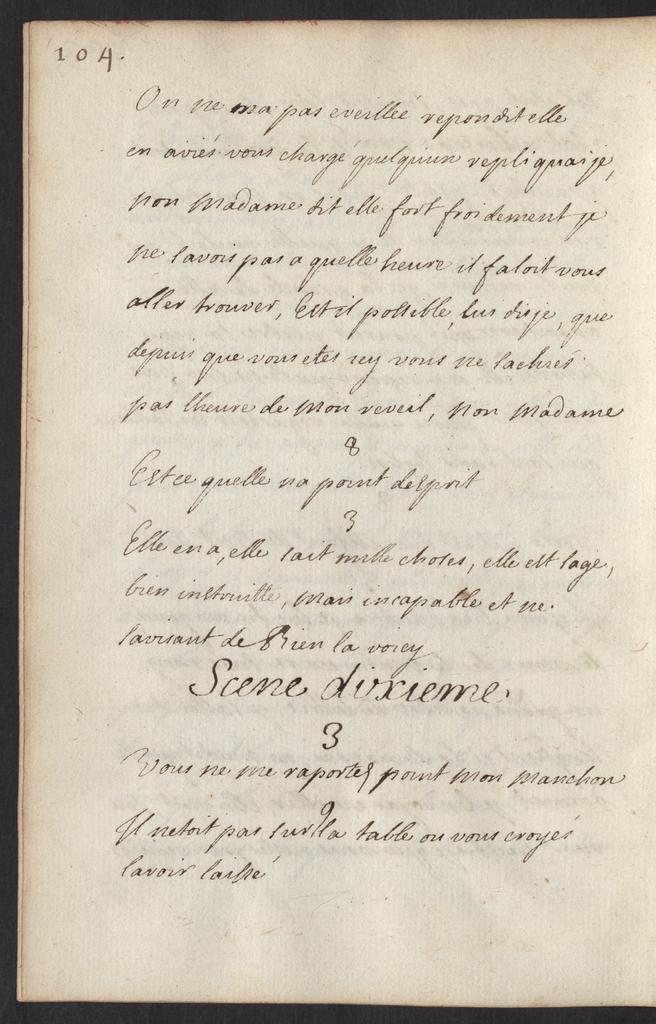 104.
On ne ma pas eveillée repondit elle
en aviés vous chargé quelquun repliquai je,
non Madame dit elle fort froidement je
ne savois pas a quelle heure il faloit vous
aller trouver, Est il possible, lui dis je, que
depuis que vous etes icy vous ne sachiés
pas lheure de mon reveil, non Madame
8
Est ce quelle na point desprit
3
Elle en a, elle sait mille choses, elle est sage,
bien instruitte, mais incapable et ne
savisant de Rien la voicy
Scene dixieme.
3
Vous ne me raportes point mon manchon
9
Il netoit pas sur la table ou vous croyés
lavoir laissé